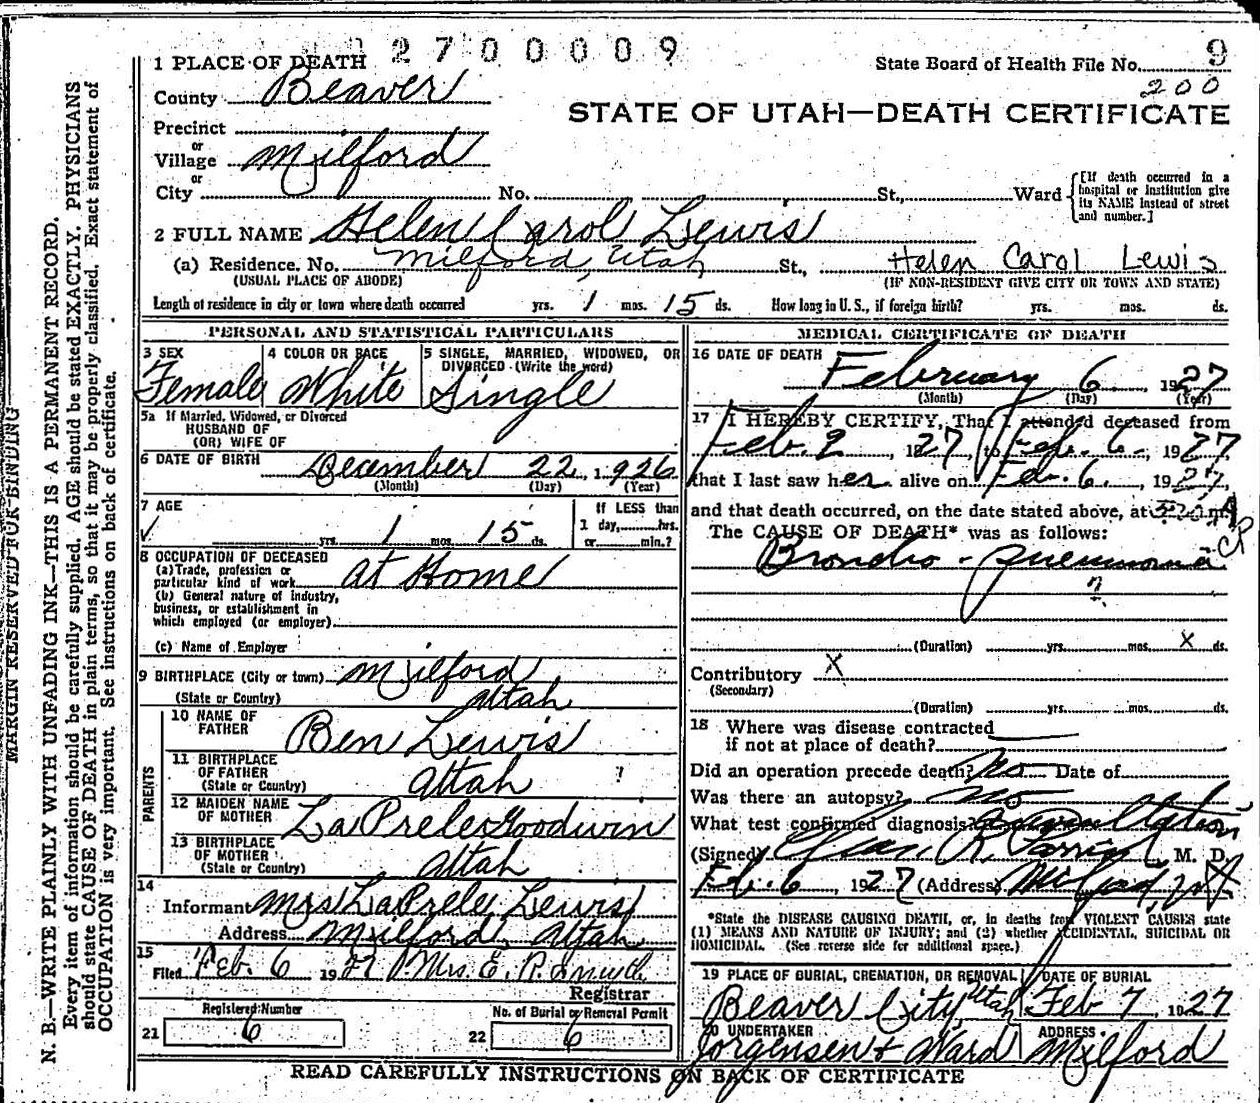 2 7 0 0 0 0 9
1 PLACE OF DEATH
State Board of Health File No. 9
200
County Beaver
STATE OF UTAH—DEATH CERTIFICATE
Precinct
or
Village Milford
or
City No. St., Ward
[If death occurred in a
hospital or institution give
its NAME instead of street
and number.]
2 FULL NAME Helen Carol Lewis
(a) Residence. No. Milford, Utah St., Helen Carol Lewis
(USUAL PLACE OF ABODE) (IF NON-RESIDENT GIVE CITY OR TOWN AND STATE)
Length of residence in city or town where death occurred yrs. 1 mos. 15 ds. How long in U. S., if foreign birth? yrs. mos. ds.
PERSONAL AND STATISTICAL PARTICULARS
3 SEX
Female
4 COLOR OR RACE
White
5 SINGLE, MARRIED, WIDOWED, OR
DIVORCED (Write the word)
Single
5a If Married, Widowed, or Divorced
HUSBAND OF
(OR) WIFE OF
6 DATE OF BIRTH December 22, 1926
(Month) (Day) (Year)
7 AGE
yrs. 1 mos. 15 ds.
If LESS than
1 day, hrs.
or min.?
8 OCCUPATION OF DECEASED
(a) Trade, profession or
particular kind of work at Home
(b) General nature of industry,
business, or establishment in
which employed (or employer)
(c) Name of Employer
9 BIRTHPLACE (City or town) Milford
(State or Country) Utah
PARENTS
10 NAME OF
FATHER Ben Lewis
11 BIRTHPLACE
OF FATHER
(State or Country) Utah ?
12 MAIDEN NAME
OF MOTHER LaPrele Goodwin
13 BIRTHPLACE
OF MOTHER
(State or Country) Utah
14
Informant Mrs LaPrele Lewis
Address Milford, Utah
15
Filed Feb. 6 1927 Mrs. E. P. Smith
Registrar
Registered Number
21 6
No. of Burial or Removal Permit
22 6
MEDICAL CERTIFICATE OF DEATH
16 DATE OF DEATH
February 6, 1927
(Month) (Day) (Year)
17 I HEREBY CERTIFY, That I attended deceased from
Feb. 2, 1927, to Feb. 6, 1927
that I last saw her alive on Feb. 6, 1927,
and that death occurred, on the date stated above, at m.
The CAUSE OF DEATH* was as follows:
Broncho-pneumonia
?
(Duration) yrs. mos. X ds.
Contributory X
(Secondary)
(Duration) yrs. mos. ds.
18 Where was disease contracted
if not at place of death?
Did an operation precede death? No Date of
Was there an autopsy? No
What test confirmed diagnosis? Auscultation
(Signed) Chas. R. M. D.
Feb. 6, 1927 (Address) Milford, Ut
*State the DISEASE CAUSING DEATH, or, in deaths from VIOLENT CAUSES state
(1) MEANS AND NATURE OF INJURY; and (2) whether ACCIDENTAL, SUICIDAL OR
HOMICIDAL. (See reverse side for additional space.)
19 PLACE OF BURIAL, CREMATION, OR REMOVAL
Beaver City, Utah
DATE OF BURIAL
Feb 7, 1927
20 UNDERTAKER
Jorgensen & Ward
ADDRESS
Milford
READ CAREFULLY INSTRUCTIONS ON BACK OF CERTIFICATE
MARGIN RESERVED FOR BINDING
N. B.—WRITE PLAINLY WITH UNFADING INK—THIS IS A PERMANENT RECORD.
Every item of information should be carefully supplied. AGE should be stated EXACTLY. PHYSICIANS
should state CAUSE OF DEATH in plain terms, so that it may be properly classified. Exact statement of
OCCUPATION is very important. See instructions on back of certificate.